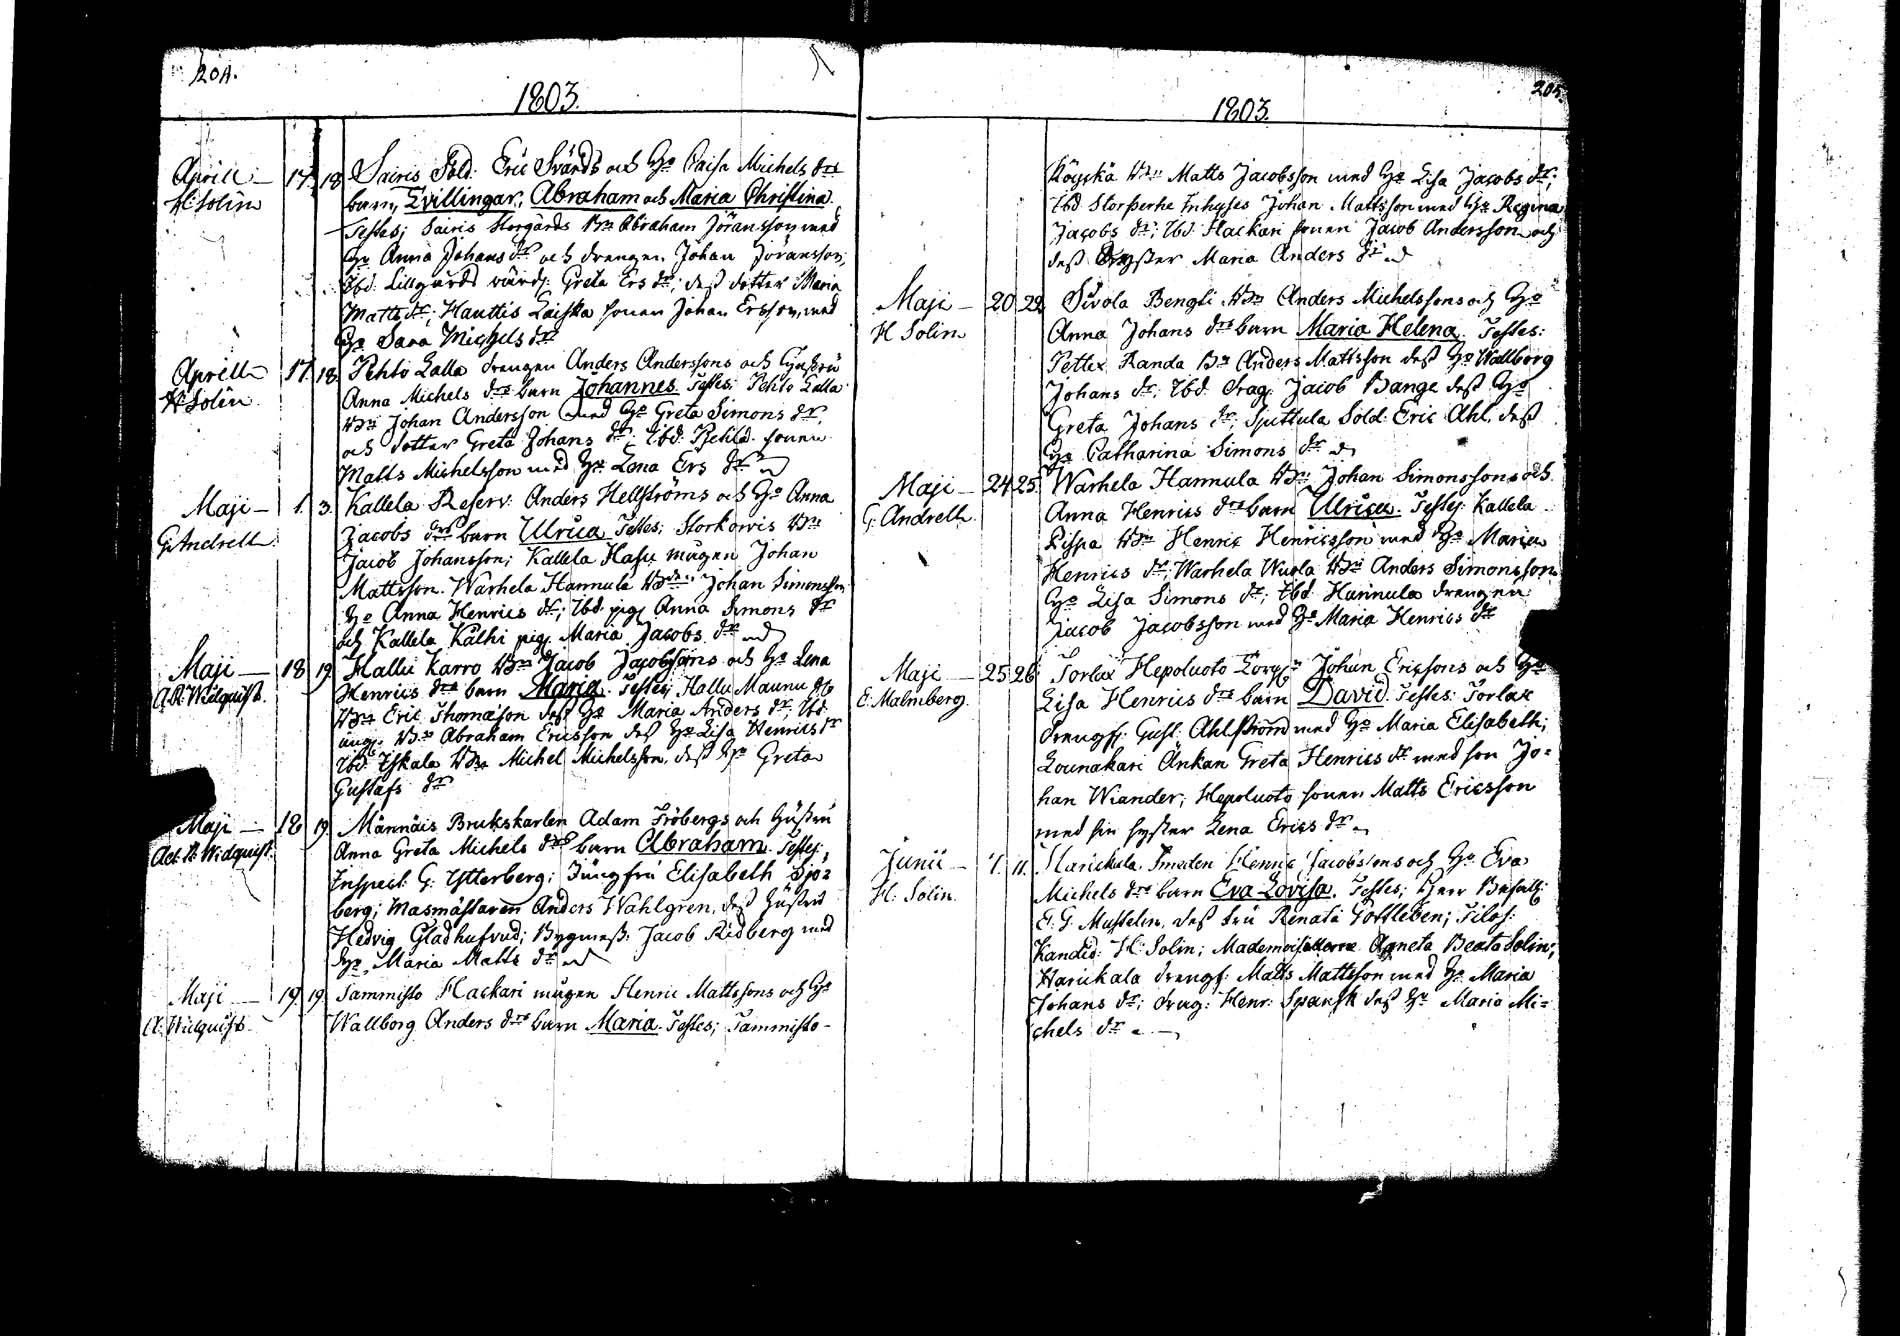 204.
1803.
Aprill — 17. 18. Sairis Sold. Eric Svärds och Ho Caisa Michels drs
H: Solin barn, Tvillingar, Abraham och Maria Christina.
Testes; Sairis Storgårds Bn Abraham Jöransson med
Ho Anna Johans dr och drengen Johan Jöransson;
Ibd. Lillgårds värdj: Greta Ers dr; dess dotter Maria
Matts dr; Hauttis Laiska sonen Johan Ersson, med
Ho Sara Michels dr
Aprill — 17. 18. Pehto Lalla drengen Anders Anderssons och Hustru
H: Solin. Anna Michels drs barn Johannes. Testes: Pehto Lalla
Bn Johan Andersson med Ho Greta Simons dr,
och dotter Greta Johans dr; Ibd. sonen
Matts Michelsson med Ho Lena Ers dr
Maji — 1. 3. Kallela Reserv: Anders Hellströms och Ho Anna
G: Andrell. Jacobs drs barn Ulrica. Testes; Storkorvis Bn
Jacob Johansson; Kallela Hasu mågen Johan
Mattsson. Warhela Hannula Bdn Johan Simonsson
Ho Anna Henrics dr; Ibd. pig. Anna Simons dr
och Kallela Kälhi pig. Maria Jacobs dr
Maji — 18 19. Hallu Karro Bn Jacob Jacobssons och Ho Lena
A.R. Widquist. Henrics drs barn Maria. Testes; Hallu Maunu
Bn Eric Thomæson dess Ho Maria Anders dr, Ibd.
Bn Abraham Ericsson dess Ho Lisa Henrics dr
Ibd. Yskala Bn Michel Michelsson, dess Ho Greta
Gustafs dr
Maji — 18 19. Männäis Brukskarlen Adam Fröbergs och Hustru
Ad. R. Widquist. Anna Greta Michels drs barn Abraham. Testes;
Inspect: G: Ytterberg; Jungfru Elisabeth Sjö=
berg; Masmästaren Anders Wahlgren, dess Hustru
Hedvig Gladhufvud; Bygmest: Jacob Ridberg med
Ho Maria Matts dr
Maji — 19. 19. Tammisto Hackari mågen Henric Mattssons och Ho
A: Widquist. Wallborg Anders drs barn Maria. Testes; Tammisto-
205.
1803.
Köyskä Bn Matts Jacobsson med Ho Lisa Jacobs dr;
Ibd Storperhe Inhyses Johan Mattsson med Ho Regina
Jacobs dr; Ibd. Hackari sonen Jacob Andersson och
dess Syster Maria Anders dr
Maji — 20 22. Sivola Bengti Bn Anders Michelssons och Ho
H Solin Anna Johans drs barn Maria Helena. Testes:
Pettex Randa Bn Anders Mattsson dess Ho Wallborg
Johans dr; Ibd. drag. Jacob Bange dess Ho
Greta Johans dr; Sputtula Sold. Eric Ahl, dess
Ho Catharina Simons dr
Maji — 24 25. Warhela Hannula Bn Johan Simonssons och
G: Andrell. Anna Henrics drs barn Ulrica. Testes; Kallela
Pispa Bn Henric Henricsson med Ho Maria
Henrics dr; Warhela Wuola Bn Anders Simonsson
Ho Lisa Simons dr; Ibd. Hannula drengen
Jacob Jacobsson med Ho Maria Henrics dr
Maji — 25 26. Torlax Hepoluoto Johan Ericsons och Ho
E: Malmberg. Lisa Henrics drs barn David. Testes: Torlax
drengf: Gust: Ahlström med Ho Maria Elisabeth;
Lounakari Änkan Greta Henrics dr med son Jo=
han Wiander; Hepoluoto sonen Matts Ericsson
med sin syster Lena Erics dr
Junii — 7. 11. Harickala Smeden Henric Jacobssons och Ho Eva
H: Solin. Michels drs barn Eva Lovisa. Testes; Herr Befallg:
E: G: Mustelin, dess Fru Renata Gottleben; Filos:
Kandid: H: Solin; Mademoisellerne Agneta Beata Solin;
Harickala drengf: Matts Mattsson med Ho Maria
Johans dr; drag: Henr: Spansk dess Ho Maria Mi=
chels dr